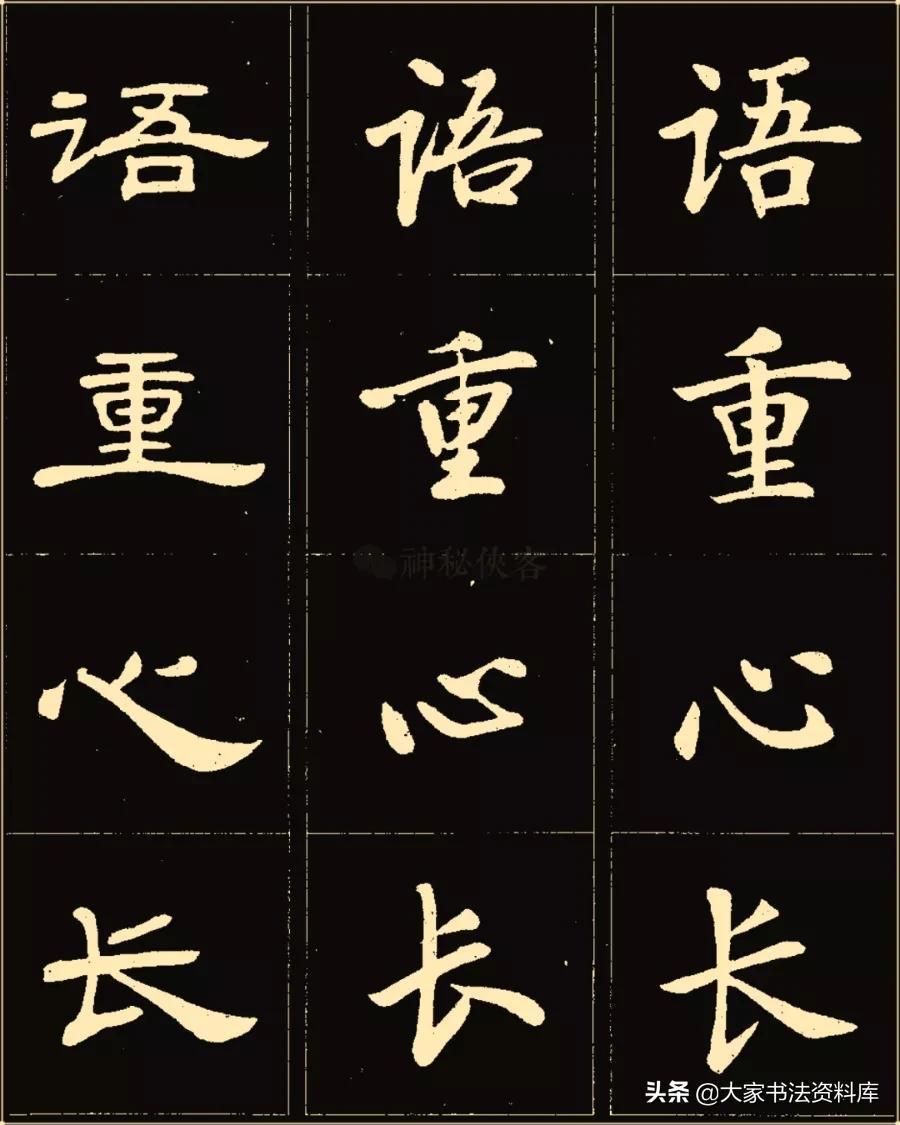 语 语 语
重 重 重
神秘侠客
心 心 心
长 长 长
头条 @大家书法资料库